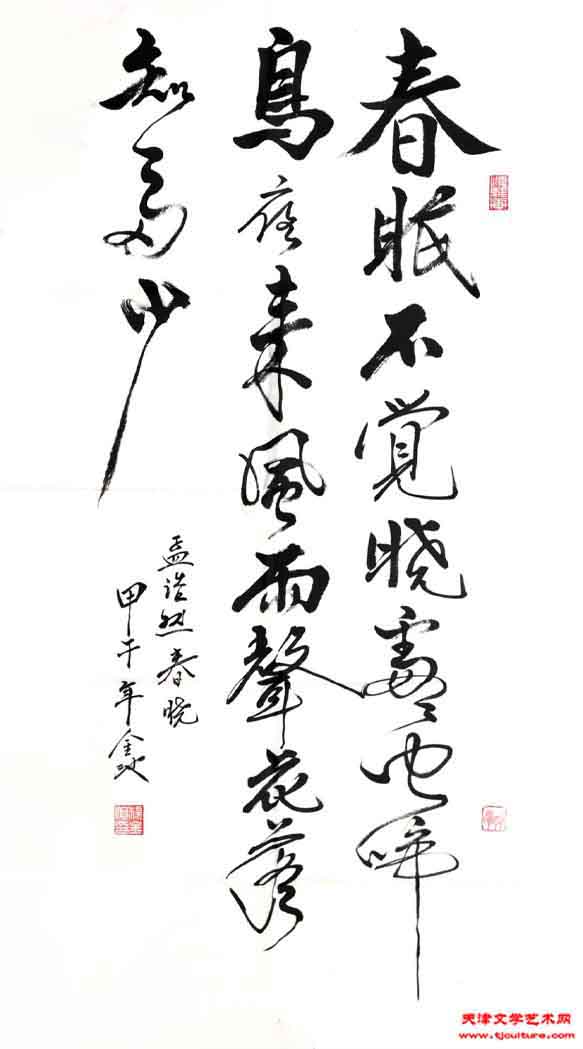 春眠不觉晓处处闻啼
鸟夜来風雨聲花落
知多少
孟浩然春晓
甲午年金
天津文学艺术网
www.tjculture.com